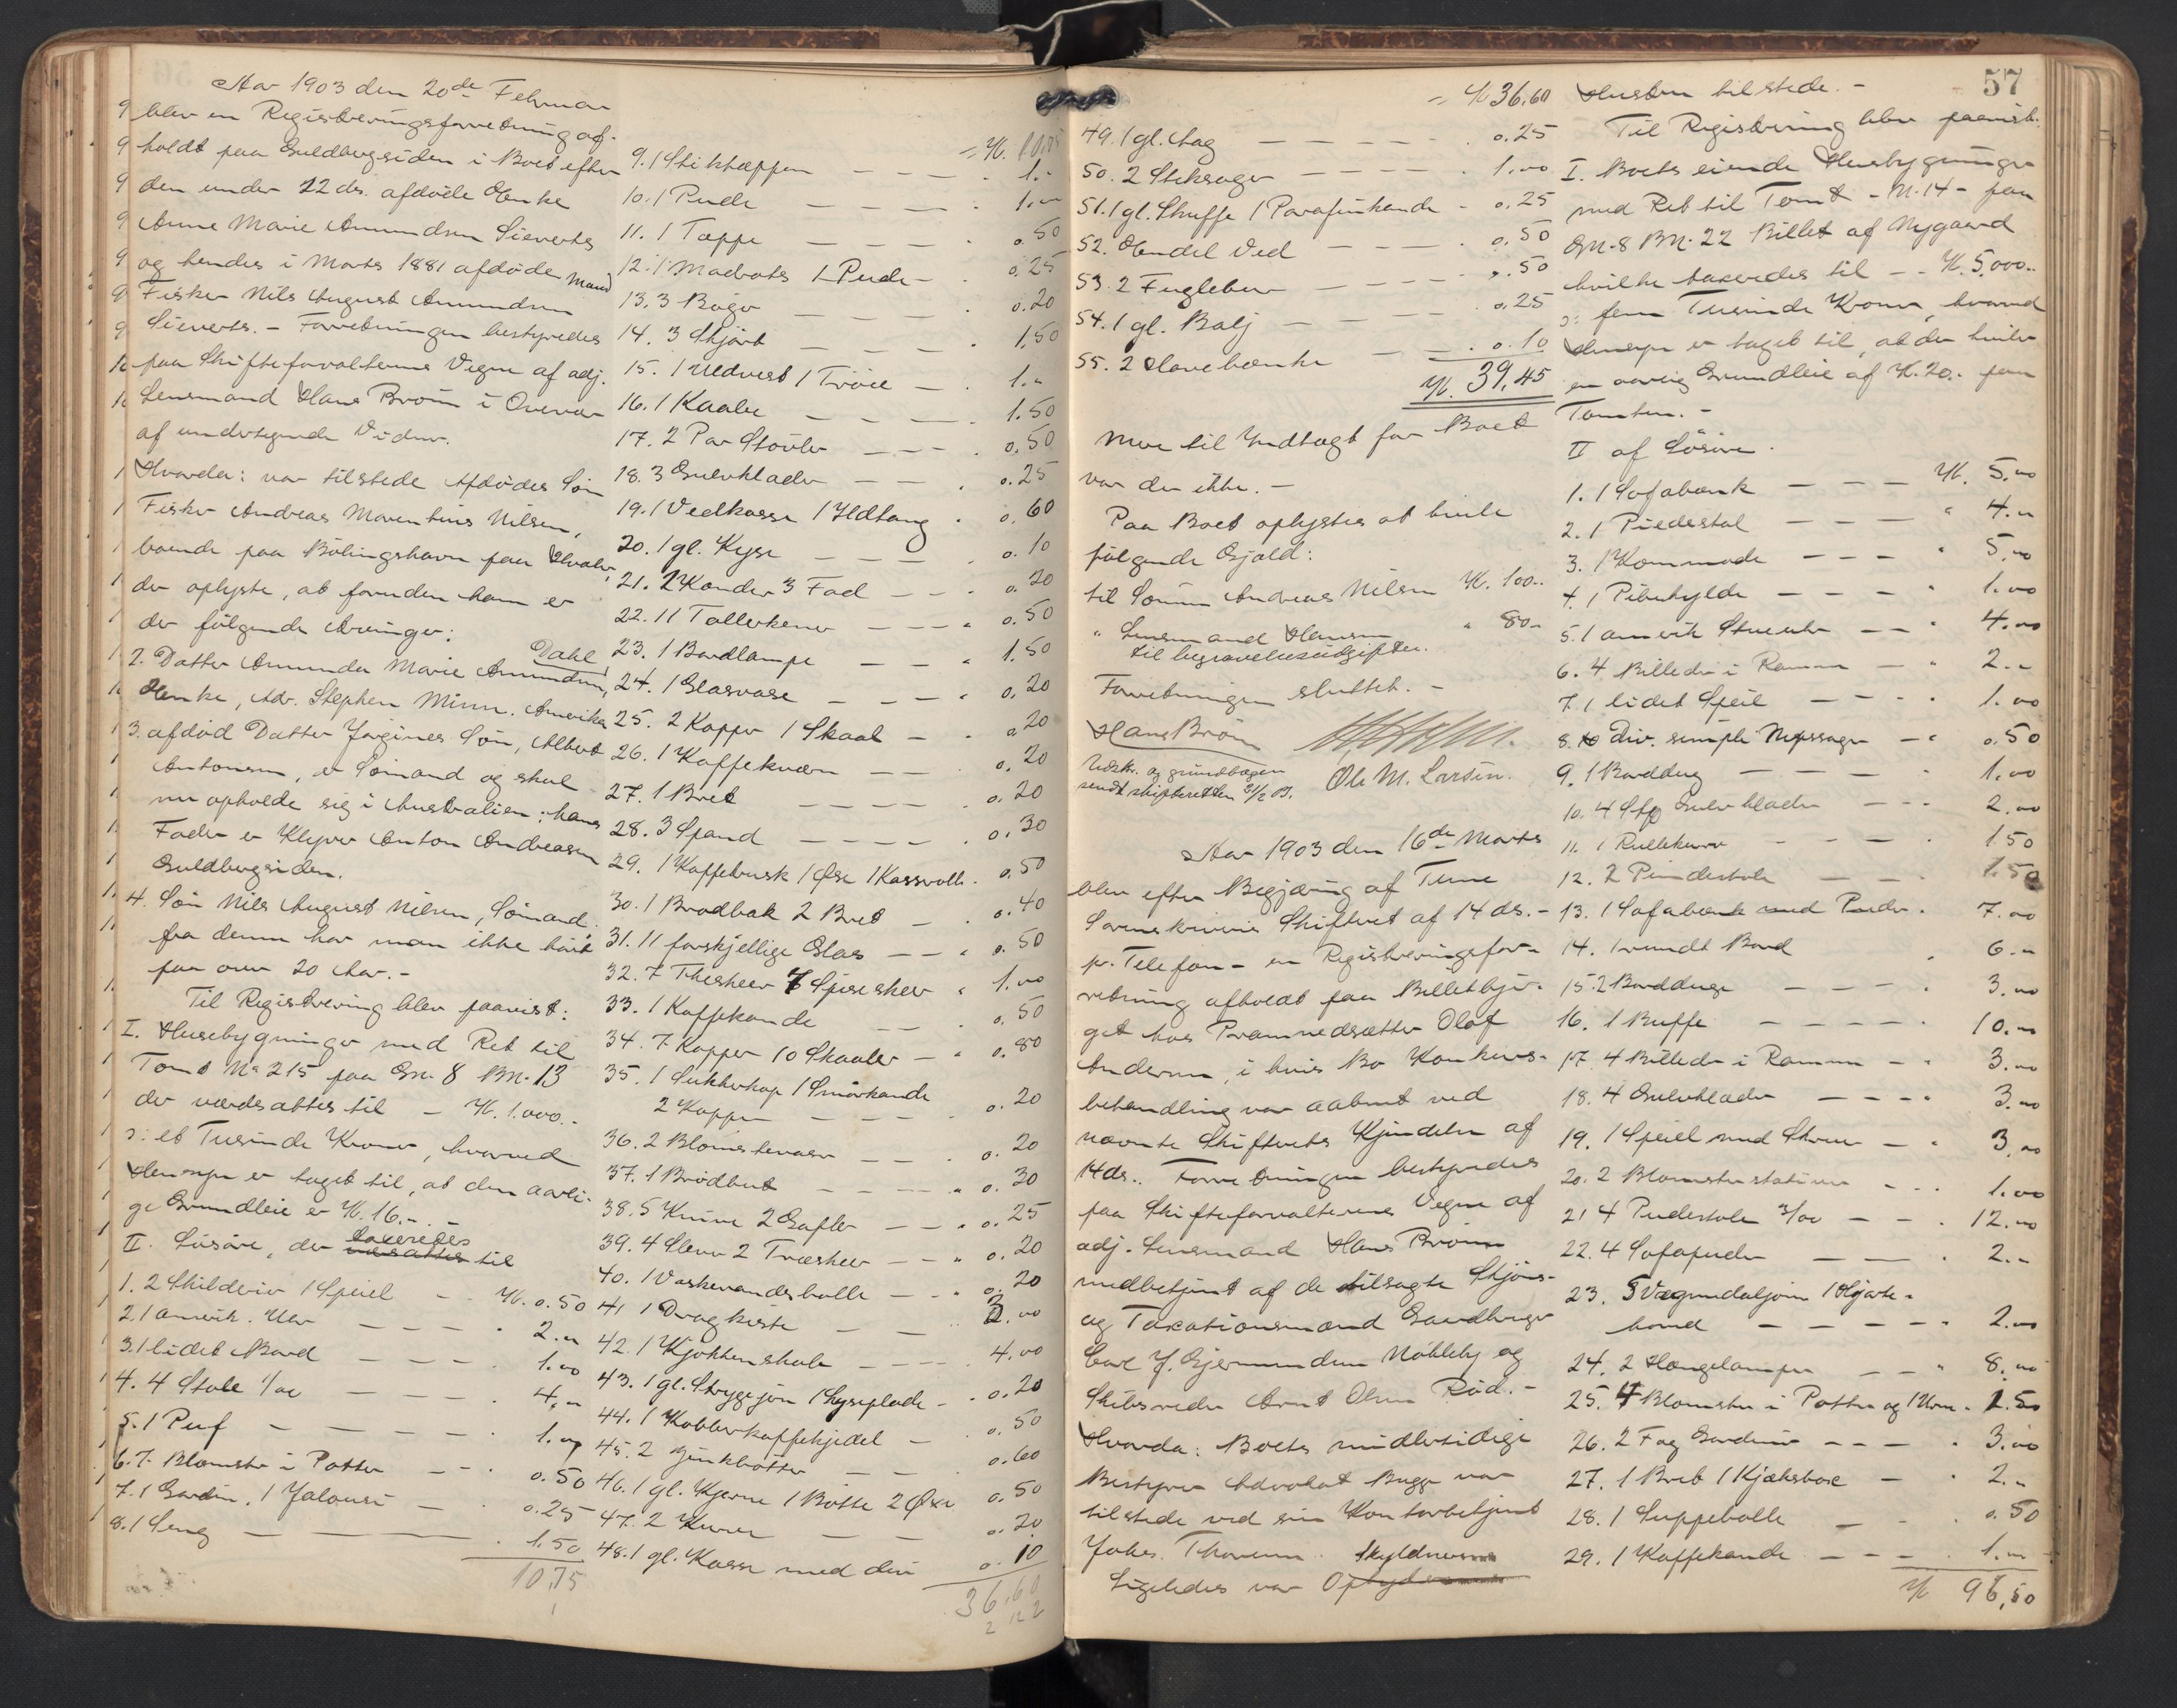 Aar 1903 den 20de Februar
blev en Registreringsforretning af-
holdt paa Guldbergsiden i Boet efter
den under 12 ds. afdøde Enke
Anne Marie Amundsen Sieverts
og hendes i Marts 1881 afdøde Mand
Fisker Nils August Amundsen
Sieverts. - Forretningen bestyredes
paa Skifteforvalterens Vegne af adj.
Lensmand Hans Brøm i Overvær
af undertegnede Vidner.
Hvorda: var tilstede Afdødes Søn
Fisker Andreas Marentius Nilsen,
boende paa Bölingshavn paa Hvaler,
der oplyste, at foruden ham er
der følgende Arvinger:
2. Datter Amunda Marie Amundsen, Dahl
Enke, Adr. Stephen Minn. Amerika
3. afdød Datter Jørgines Søn, Albert
Antonsen, er Sømand og skal
nu opholde sig i Australien; hans
Fader er Kleper Anton Andreasen
Guldbergsiden.
4. Søn Nils August Nilsen, Sømand.
fra denne har man ikke hört
paa over 20 Aar. -
Til Registrering blev paavist:
I. Husebygninger med Ret til
Tomt No 215 paa Gn. 8 Bn. 13
der værdsattes til - Kr. 1.000.-
ɔ: et Tusinde Kroner, hvorved
Hensyn er taget til, at den aarli-
ge Grundleie er Kr. 16.-. -
II. Løsøre, der værdsattes taxeredes til
1. 2 Skilderier 1 Speiel - - Kr. 0.50
2. 1 amerik. Uhr - - - - 2.-
3. 1 lidet Bord - - - - 1.00
4. 4 Stole 1/00 - - - - 4.-
5. 1 Puf - - - - 1.00
6. 7 Blomster i Potter - - 0.50
7. 1 Gardin, 1 Jalousi - - 0.25
8. 1 Seng - - - 1.50
10,75
= Kr. 10.75
9. 1 Stiktæppe - - - 1.-
10. 1 Pude - - - 1.-
11. 1 Tæppe - - - 0.50
12. 1 Madrats 1 Pude - 0.25
13. 3 Bøger - - - 0.20
14. 3 Skjørt - - - 1.50
15. 1 Uldvest 1 Trøie - 1.-
16. 1 Kaabe - - - 1.50
17. 2 Par Støvler - - - 0.50
18. 3 Gulvklæder - - - 0.25
19. 1 Vedkasse 1 Ildtang . 0.60
20. 1 gl. Kyse - - - 0.10
21. 2 Kander 3 Fad - - - 0.20
22. 11 Tallerkener - - - 0.50
23. 1 Bordlampe - - - 1.50
24. 1 Glasvase - - - 0.20
25. 2 Kopper 1 Skaal - - 0.20
26. 1 Kaffekværn - - 0.20
27. 1 Bret - - - - 0.20
28. 3 Spand - - - - 0.30
29. 1 Kaffebrusk 1 Øse 1 Kasserolle . 0.50
30. 1 Brødbak 2 Bret - 0.40
31. 11 forskjellige Glas - - 0.50
32. 7 Theskeer 6 Spiseskeer " 1.00
33. 1 Kaffekande - - 0.50
34. 7 Kopper 10 Skaaler - " 0.80
35. 1 Sukkerkop 1 Smørkande
2 Kopper - - - 0.20
36. 2 Blomstervaser - - 0.20
37. 1 Brødbret - - - 0.30
38. 5 Knive 2 Gafler - - " 0.25
39. 4 Sleve 2 Træskeer - - " 0.20
40. 1 Vaskevandsbolle - - " 0.20
41 1 Dragkiste - - 2.00
42. 1 Kjøkkenskab - - - 4.00
43. 1 gl. Strygejern 1 Lyseplade - 0.20
44. 1 Kobberkaffekjedel - 0.50
45. 2 Zinkbøtter - - 0.60
46. 1 gl. Kjerne 1 Bøtte 2 Øxer 0.50
47. 2 Kurve - - 0.20
48. 1 gl. Kasse med div 0.10
36,60
= Kr 36.60
49. 1 gl. Sag - - - - 0.25
50. 2 Stiksager - - - - 1.00
51. 1 gl. Skuffe 1 Parafinkande - 0.25
52. Endel Ved - - - 0.50
53. 2 Fuglebur - - - - .50
54. 1 gl. Balj - - - 0.25
55. 2 Havebænke - - 0.10
Kr. 39,45
Mere til Indtægt for Boet
var der ikke. -
Paa Boet oplystes at hvile
følgende Gjæld:
til Sønnen Andreas Nilsen Kr. 100..
" Lensmand Hansen " 80.-
til begravelsesudgifter.
Forretningen sluttet. -
Hans Brøm
Ole M. Larsen.
Udskr. og grundbogen
sendt skifteretten 21/2 03.
Aar 1903 den 16de Marts
blev efter Begjæring af Tune
Sorenskriveris Skifteret af 14 ds. -
pr. Telefon - en Registreringsfor-
retning afholdt paa Billetbyg-
get hos Pramnedsætter Olaf
Andersen, i hvis Bo Konkurs-
behandling var aabnet ved
nævnte Skifterets Kjendelse af
14 ds.. Forretningen bestyredes
paa Skifteforvalterens Vegne af
adj. Lensmand Hans Brøm
medbetjent af de tilsagte Skjøns-
og Taxationsmænd Gaardbruger
Carl J. Gjermundsen Nøkleby og
Skibsreder Arnt Olsen Rød. -
Hvorda: Boets midlertidige
Bestyrer Advokat Bugge var
tilstede ved sin Kontorbetjent
Johs. Thoresen. Skyldneren
Ligeledes var
Hustru tilstede. -
57
Til Registrering blev paavist:
I. Boets eiende Husbygninger
med Ret til Tomt - N. 14 - paa
Gn. 8 Bn. 22 Billet af Nygaard
hvilke taxeredes til - - Kr. 5,000..
ɔ: fem Tusinde Kroner, hvorved
Hensyn er taget til, at der hviler
en aarlig Grundleie af Kr. 20.- paa
Tomten. -
II af Løsøre.
1. 1 Sofabænk - - - Kr. 5.00
2. 1 Piedestal - - - " 4.-
3. 1 Kommode - - - " 5.00
4. 1 Pibehylde - - - " 1.00
5. 1 amerik Stueuhr - - " 4.00
6. 4 Billeder i Ramme - " 2.-
7. 1 lidet Speil - - - . 1.00
8. div. simple Nipssager - " 0.50
9. 1 Borddug - - - - 1.00
10. 4 Stk Gulvklæder - - - 2.00
11. 1 Rullekurv - - - . 1.50
12. 2 Pindestole - - - . 1.50
13. 1 Sofabænk med Puder . 7.00
14. 1 rundt Bord . 6.-
15. 2 Bordduge - - - . 3.00
16. 1 Buffe - - - - . 10.00
17. 4 Billeder i Ramme - - 3.00
18. 4 Gulvklæder - - - " 3.00
19. 1 Speiel med Skruer - " 3.00
20. 2 Blomsterstativer - - - 1.00
21 4 Pindestole 3/00 - - . 12.00
22. 4 Sofapuder - - . 2.-
23. 5 Vægmedaljoner 1 Hjørte-
hoved - - - - - " 2.00
24. 2 Hængelamper - - " 8.00
25. 4 Blomster i Potter og 1 Urne . 1.50
26. 2 Fag Gardiner - - - . 3.00
27. 1 Bret 1 Kjæksboxe - . 2.-
28. 1 Suppebolle - - . 0.50
29. 1 Kaffekande - - - . 1.00
Kr 96,50